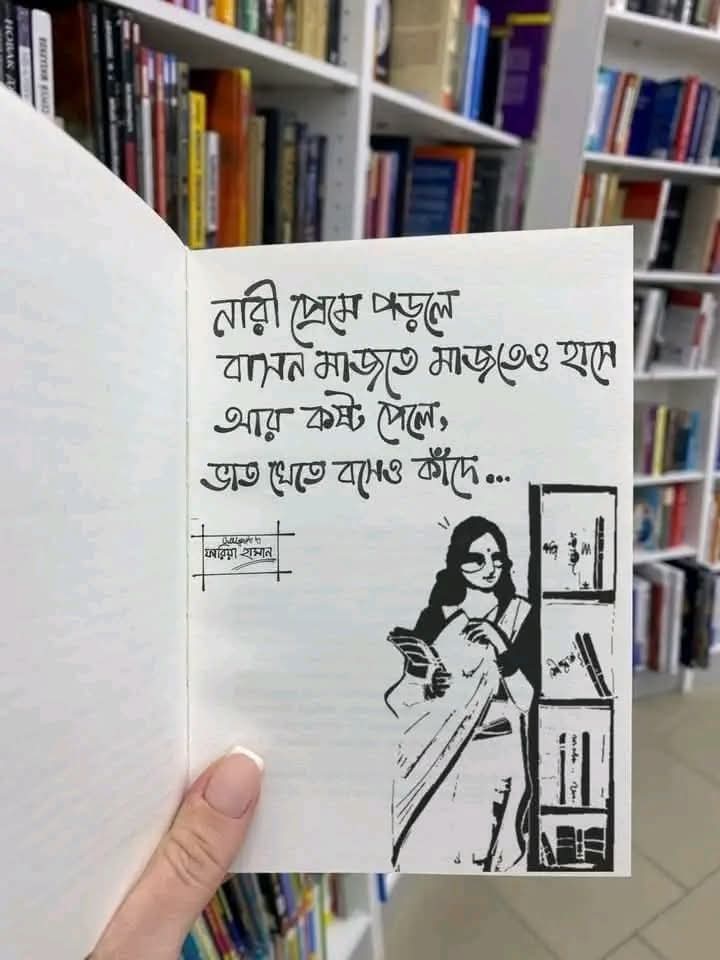 নারী প্রেমে পড়লে
বাসন মাজতে মাজতেও হাসে
আর কষ্ট পেলে,
ভাত খেতে বসেও কাঁদে...
ফারিয়া হাসান